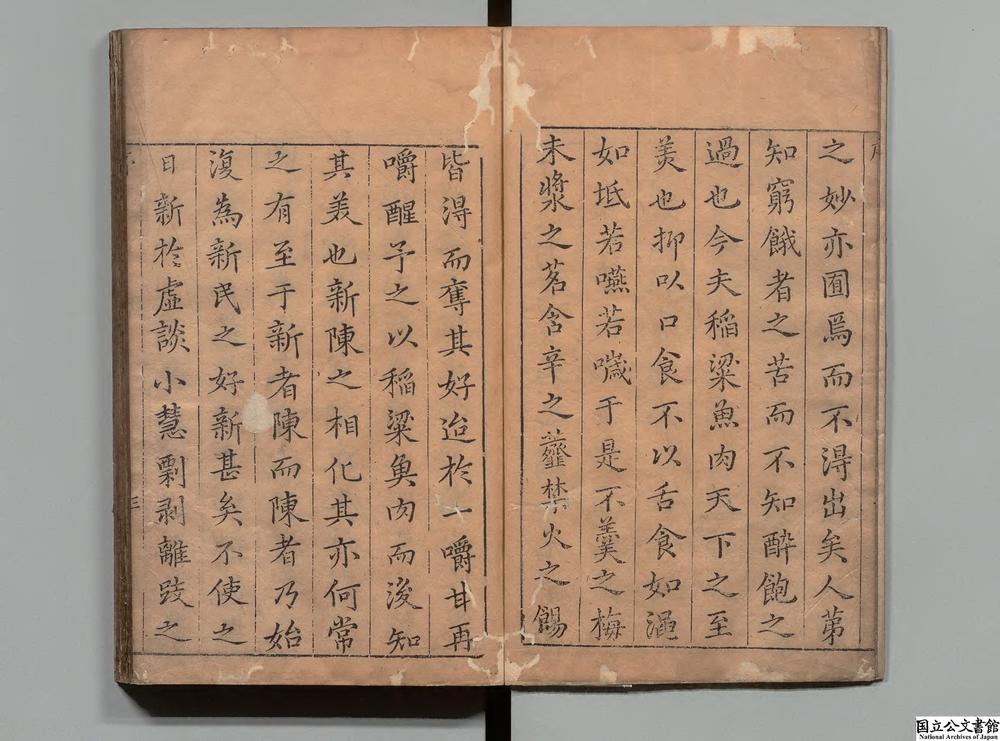 之妙亦囿焉而不得出矣人苐
知窮餓者之苦而不知醉飽之
過也今夫稻粱魚肉天下之至
羙也抑以口食不以舌食如
如坻若嚥若噦于是不羹之梅
未漿之茗含辛之虀禁火之餳
皆得而奪其好迨於一嚼甘再
嚼醒予之以稻粱魚肉而後知
其羙也新陳之相化其亦何常
之有至于新者陳而陳者乃始
復為新民之好新甚矣不使之
日新於虛談小慧剽剥離跂之
三
国立公文書館
National Archives of Japan